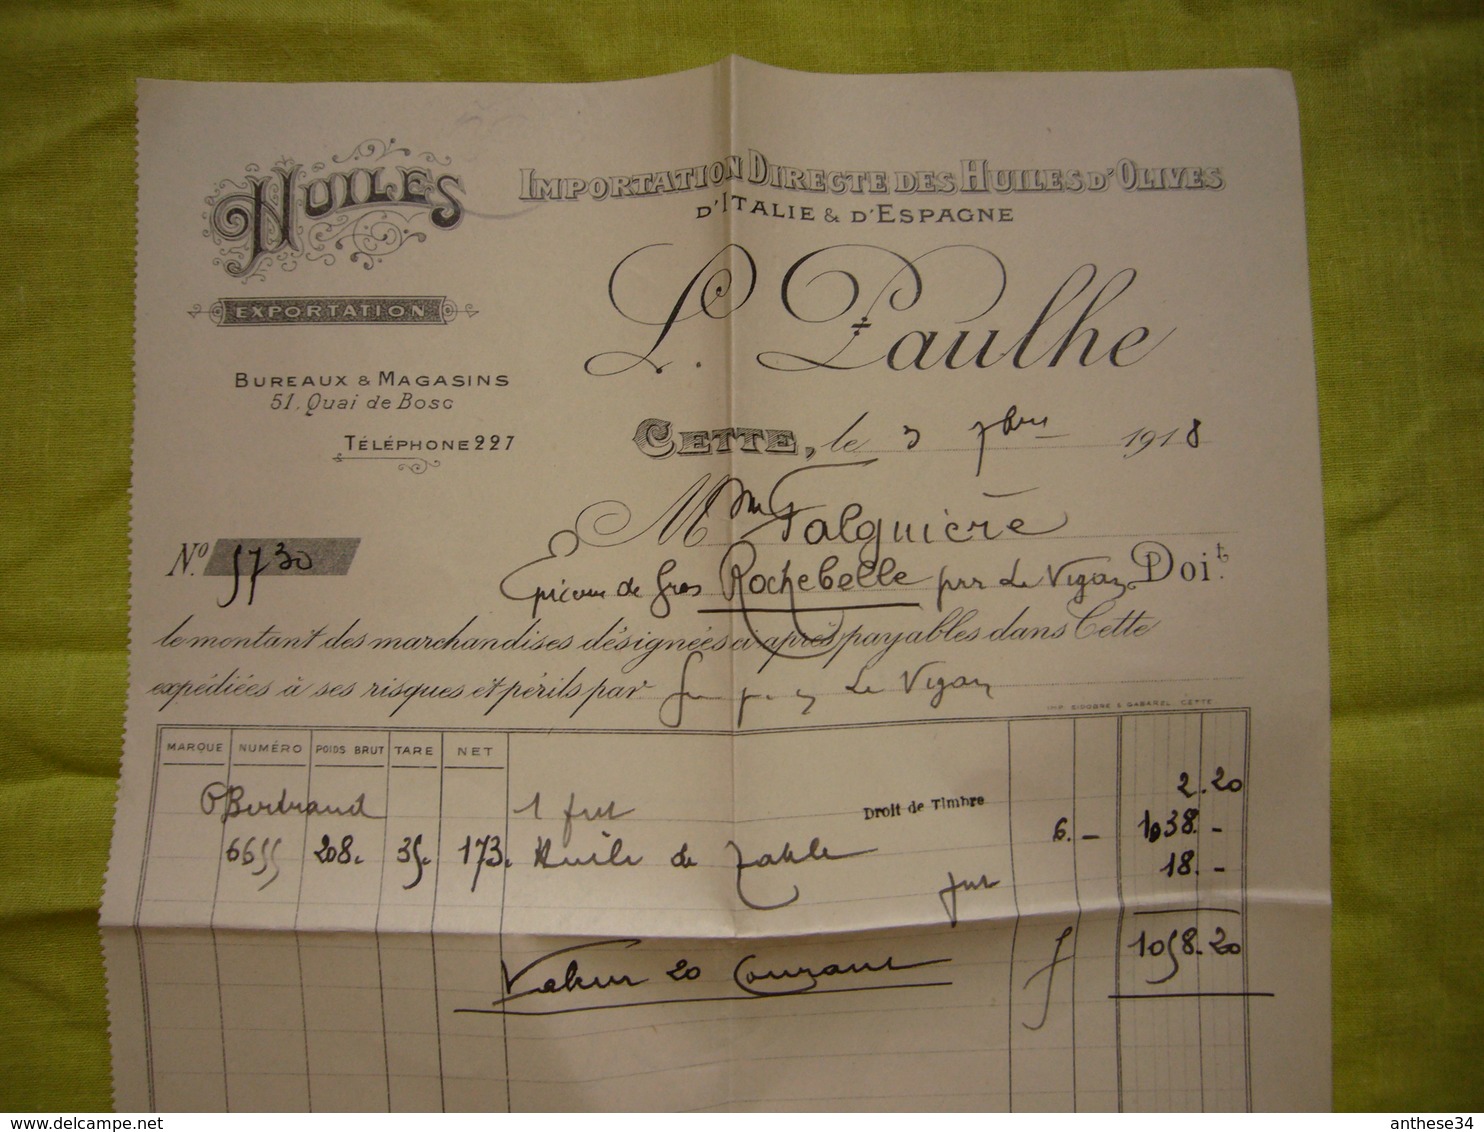 HUILES
EXPORTATION
BUREAUX & MAGASINS
51, Quai de Bosc
TÉLÉPHONE 227
IMPORTATION DIRECTE DES HUILES D'OLIVES
D'ITALIE & D'ESPAGNE
L. Paulhe
CETTE, le 3 7bre 1918
Mme Falguière
No. 5730
Epicerie de Gros Rochebelle par Le Vigan Doit.
le montant des marchandises désignées ci après, payables dans Cette
expédiées à ses risques et périls par Le Vigan
IMP. SIDOGNE & GABAREL, CETTE
MARQUE NUMÉRO POIDS BRUT TARE NET
Droit de Timbre 2.20
P Bertrand 1 fut
6655 208. 35. 173. Huile de Table 6.- 1038.-
fut 18.-
Valeur 20 Courant f 1058.20
www.delcampe.net
anthese34